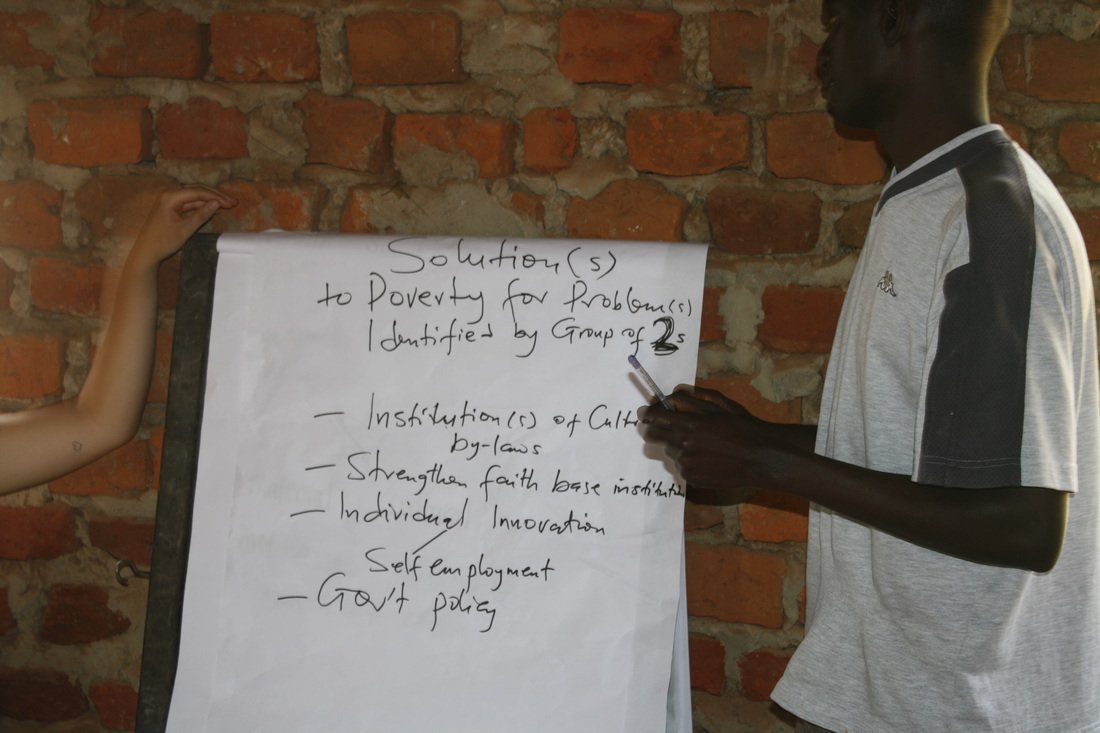 Solution(s)
to Poverty for Problem(s)
Identified by Group of 2s
- Institution(s) of
by-laws
- Strengthen faith base
- Individual Innovation
Self employment
- Gov't policy